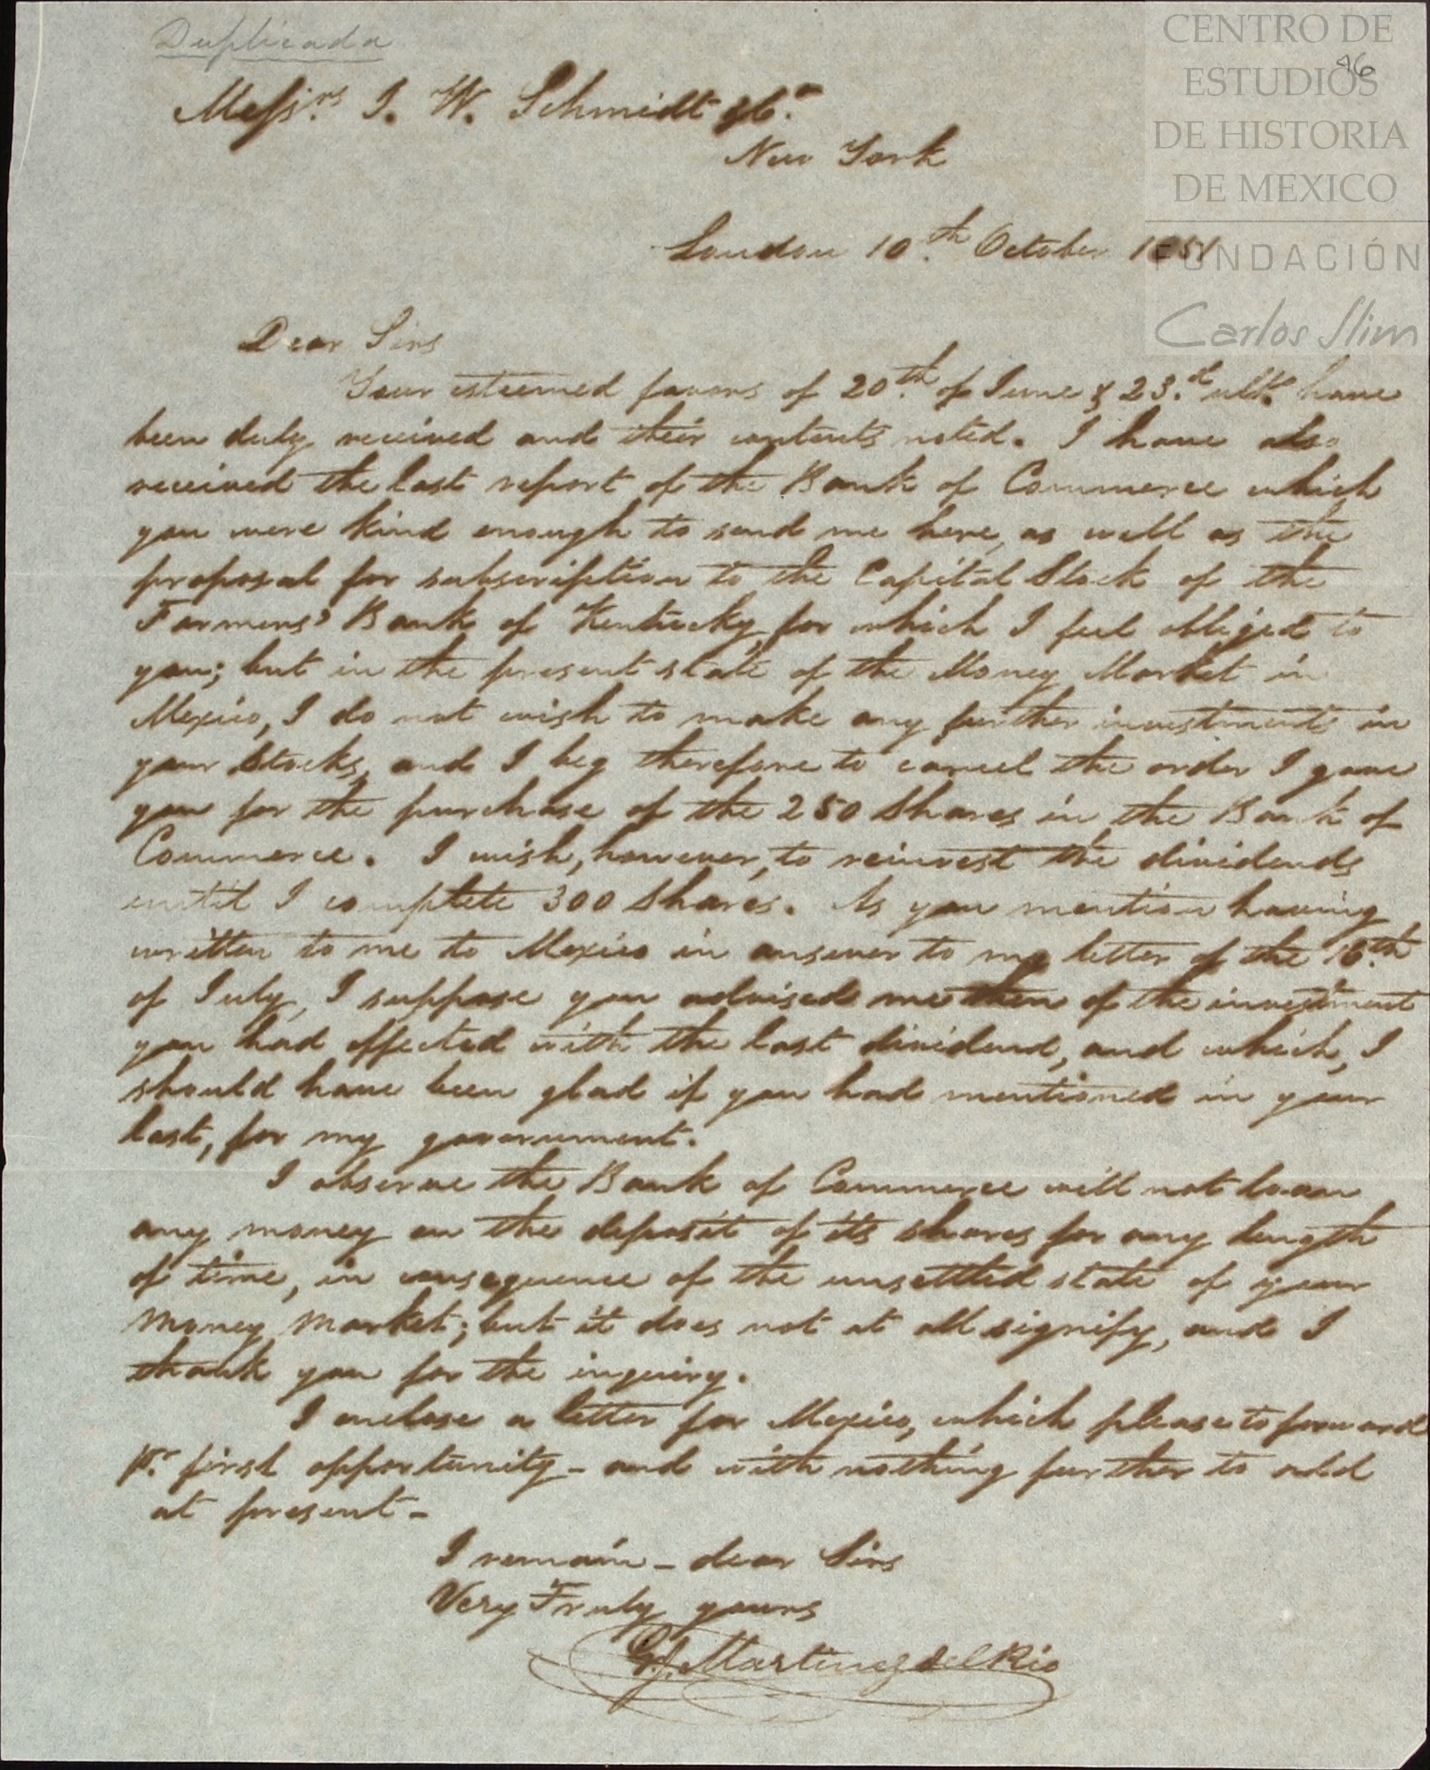 Duplicada
96
CENTRO DE
ESTUDIOS
DE HISTORIA
DE MEXICO
FUNDACIÓN
Carlos Slim
Messrs. J. W. Schmidt & Co.
New York
London 10.th October 1851
Dear Sirs
Your esteemed favors of 20.th of June & 23.d ulto. have
been duly received and their contents noted. I have also
received the last report of the Bank of Commerce which
you were kind enough to send me here, as well as the
proposal for subscription to the Capital Stock of the
Farmers' Bank of Kentucky, for which I feel obliged to
you; but in the present state of the Money Market in
Mexico, I do not wish to make any further investments in
your Stocks, and I beg therefore to cancel the order I gave
you for the purchase of the 250 Shares in the Bank of
Commerce. I wish, however, to reinvest the dividends
until I complete 300 Shares. As you mention having
written to me to Mexico in answer to my letter of the 16.th
of July, I suppose you advised me then of the investment
you had effected with the last dividend, and which, I
should have been glad if you had mentioned in your
last, for my government.
I observe the Bank of Commerce will not loan
any money on the deposit of its shares for any length
of time, in consequence of the unsettled state of your
Money Market; but it does not at all signify, and I
thank you for the inquiry.
I enclose a letter for Mexico, which please to forward
pr. first opportunity - and with nothing further to add
at present -
I remain - dear Sirs
Very Truly yours
G. J. Martinez del Rio